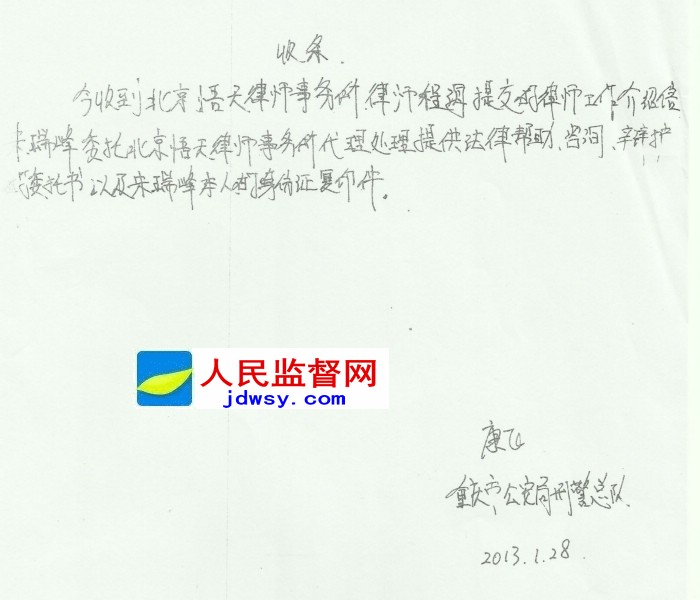 收条.
今收到北京悟天律师事务所律师程渭提交的律师工作介绍信
朱瑞峰委托北京悟天律师事务所代理处理提供法律帮助、咨询、辩护
委托书以及朱瑞峰本人的身份证复印件。
人民监督网
jdwsy.com
康飞
重庆市公安局刑警总队
2013.1.28.